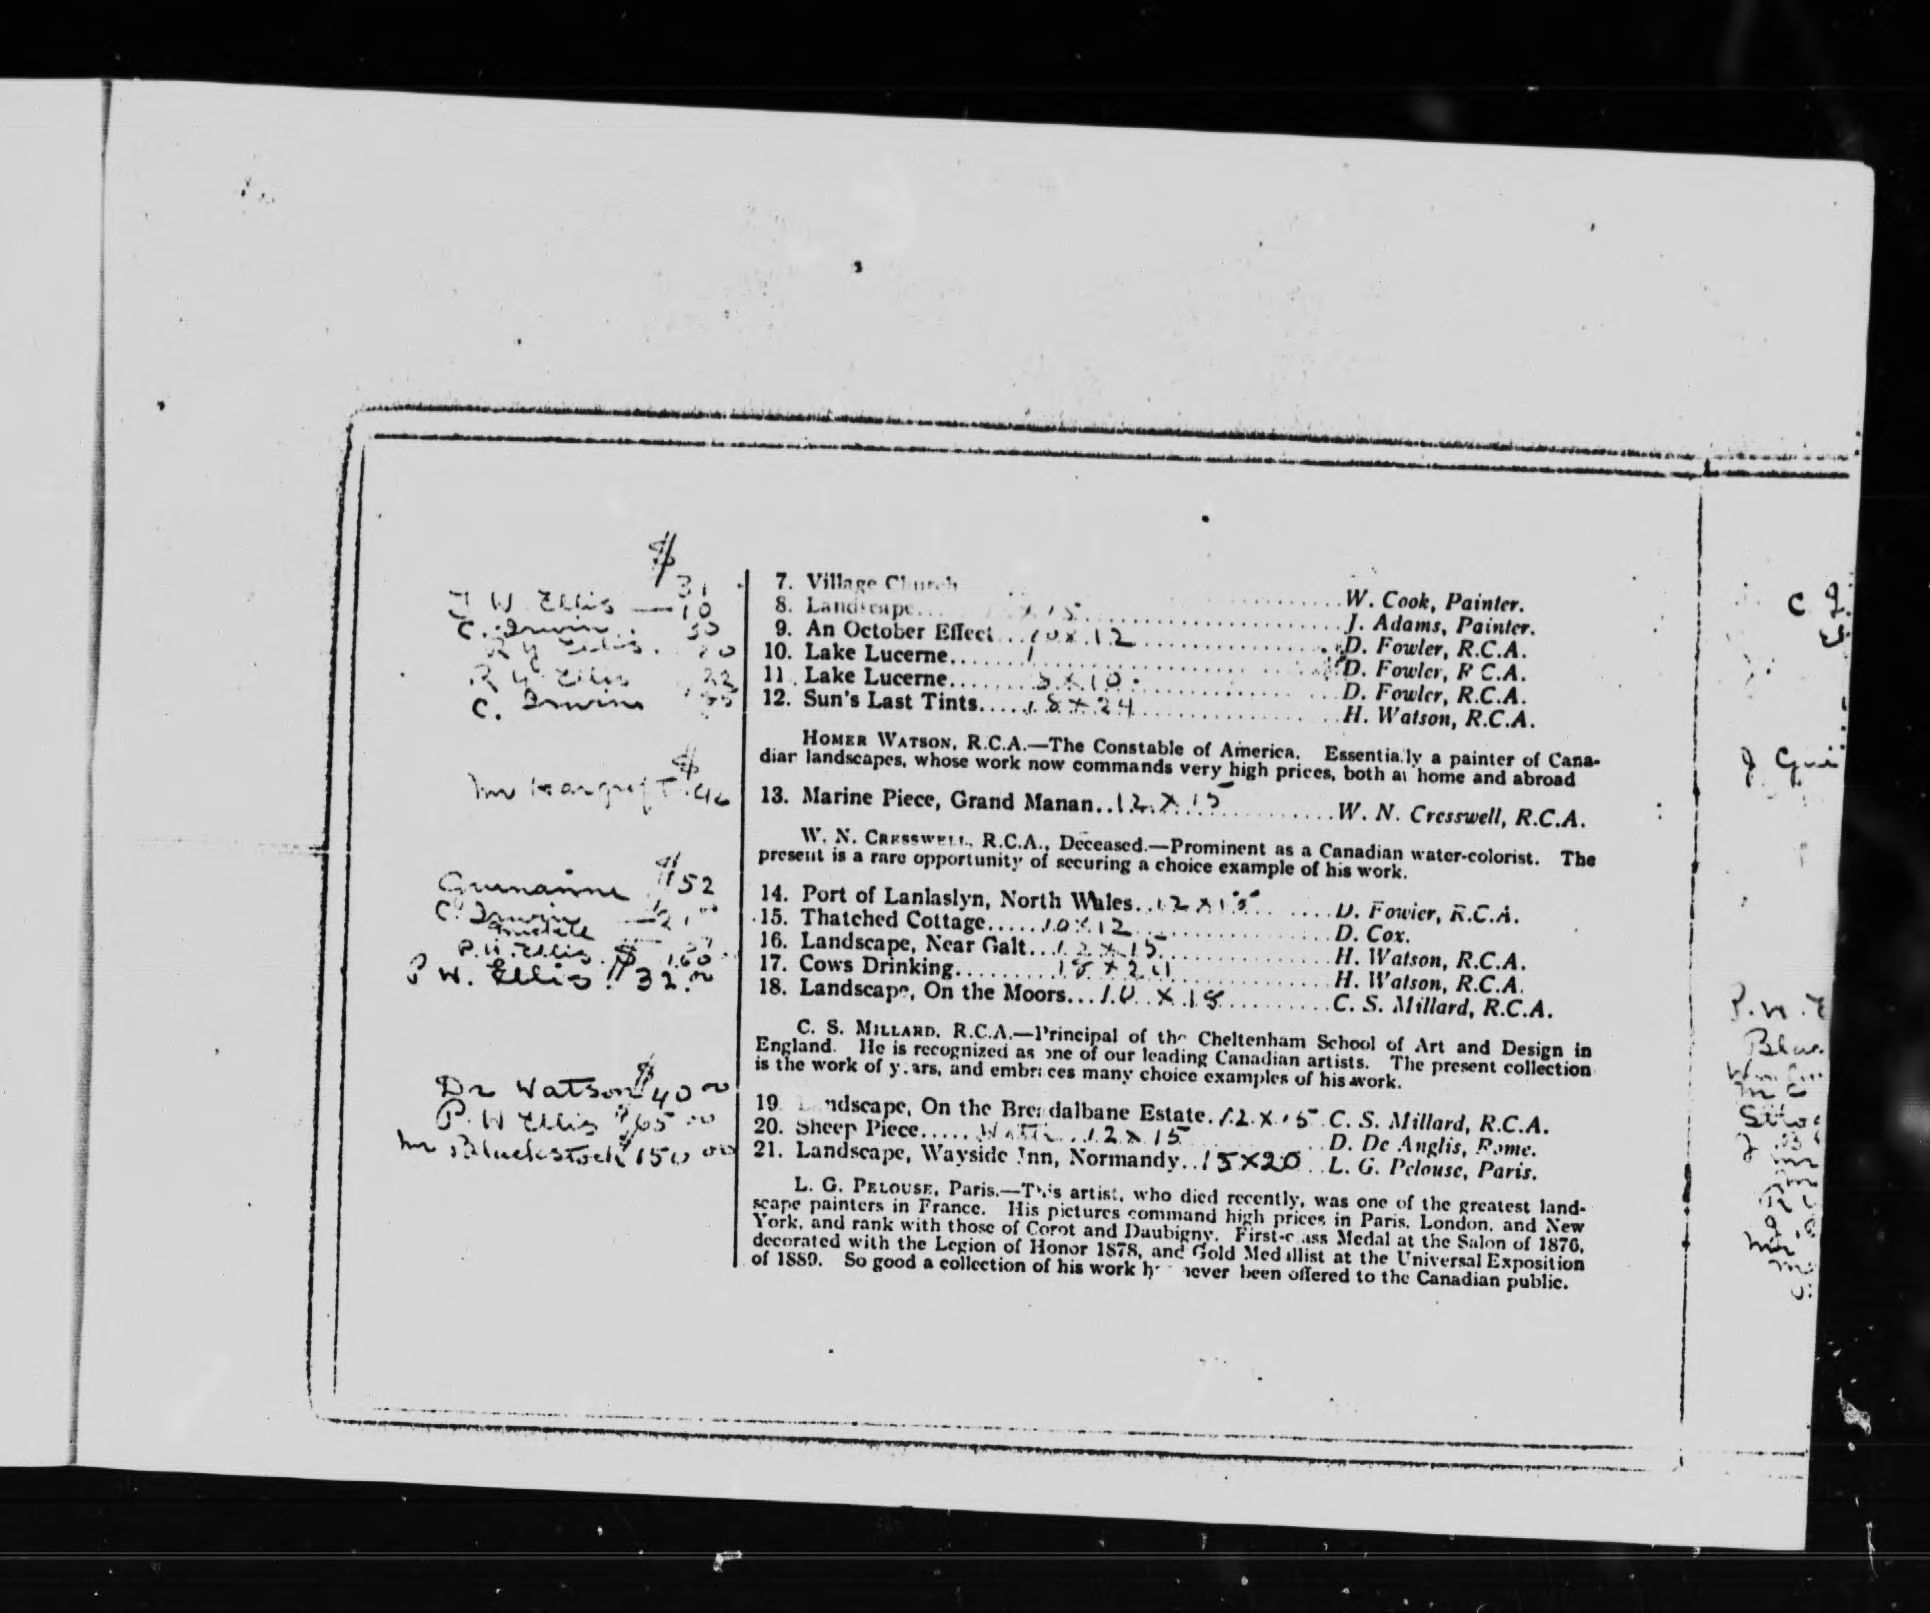 $
31
7. Village Church ..........W. Cook, Painter.
J W Ellis — 10
8. Landscape... x 15 ..........J. Adams, Painter.
C. Irwin. 30
9. An October Effect...10 x 12..........D. Fowler, R.C.A.
R Y Ellis. 20
10. Lake Lucerne..........D. Fowler, R C.A.
R Y Ellis 22
11. Lake Lucerne.......5 x 10..........D. Fowler, R.C.A.
C. Irwin
12. Sun's Last Tints.....18 x 24..........H. Watson, R.C.A.
HOMER WATSON, R.C.A.—The Constable of America. Essentially a painter of Cana-
diar landscapes, whose work now commands very high prices, both at home and abroad
$
13. Marine Piece, Grand Manan..12 x 15..........W. N. Cresswell, R.C.A.
W. N. CRESSWELL, R.C.A., Deceased.—Prominent as a Canadian water-colorist. The
present is a rare opportunity of securing a choice example of his work.
$52
14. Port of Lanlaslyn, North Wales..12 x 15......D. Fowler, R.C.A.
C. Irwin
15. Thatched Cottage.....10 x 12..........D. Cox.
16. Landscape, Near Galt...12 x 15..........H. Watson, R.C.A.
P. W. Ellis. $ 160
17. Cows Drinking..........18 x 24..........H. Watson, R.C.A.
P W. Ellis $ 32.00
18. Landscape, On the Moors...10 x 18..........C. S. Millard, R.C.A.
C. S. MILLARD, R.C.A.—Principal of the Cheltenham School of Art and Design in
England. He is recognized as one of our leading Canadian artists. The present collection
is the work of y ars, and embraces many choice examples of his work.
Dr Watson $40 00
19. Landscape, On the Breadalbane Estate.12 x 15 C. S. Millard, R.C.A.
P. W Ellis $65 00
20. Sheep Piece..... 12 x 15..........D. De Anglis, Rome.
Mr Blackstock $150 00
21. Landscape, Wayside Inn, Normandy..15 x 20..L. G. Pelouse, Paris.
L. G. PELOUSE, Paris.—This artist, who died recently, was one of the greatest land-
scape painters in France. His pictures command high prices in Paris, London, and New
York, and rank with those of Corot and Daubigny. First-class Medal at the Salon of 1876,
decorated with the Legion of Honor 1878, and Gold Medallist at the Universal Exposition
of 1889. So good a collection of his work h never been offered to the Canadian public.